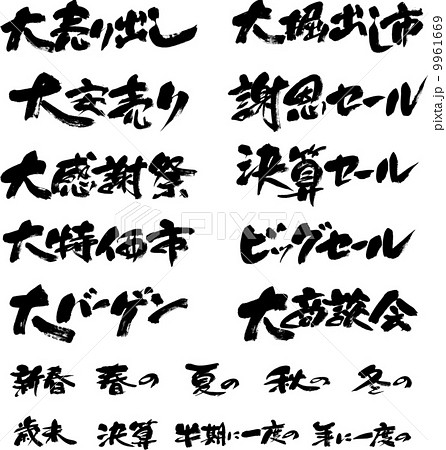 大売り出し 大堀出し市
大安売り 謝恩セール
大感謝祭 決算セール
大特価市 ビッグセール
大バーゲン 大商談会
新春 春の 夏の 秋の 冬の
歳末 決算 半期に一度の 年に一度の
PIXTA
pixta.jp - 9961669